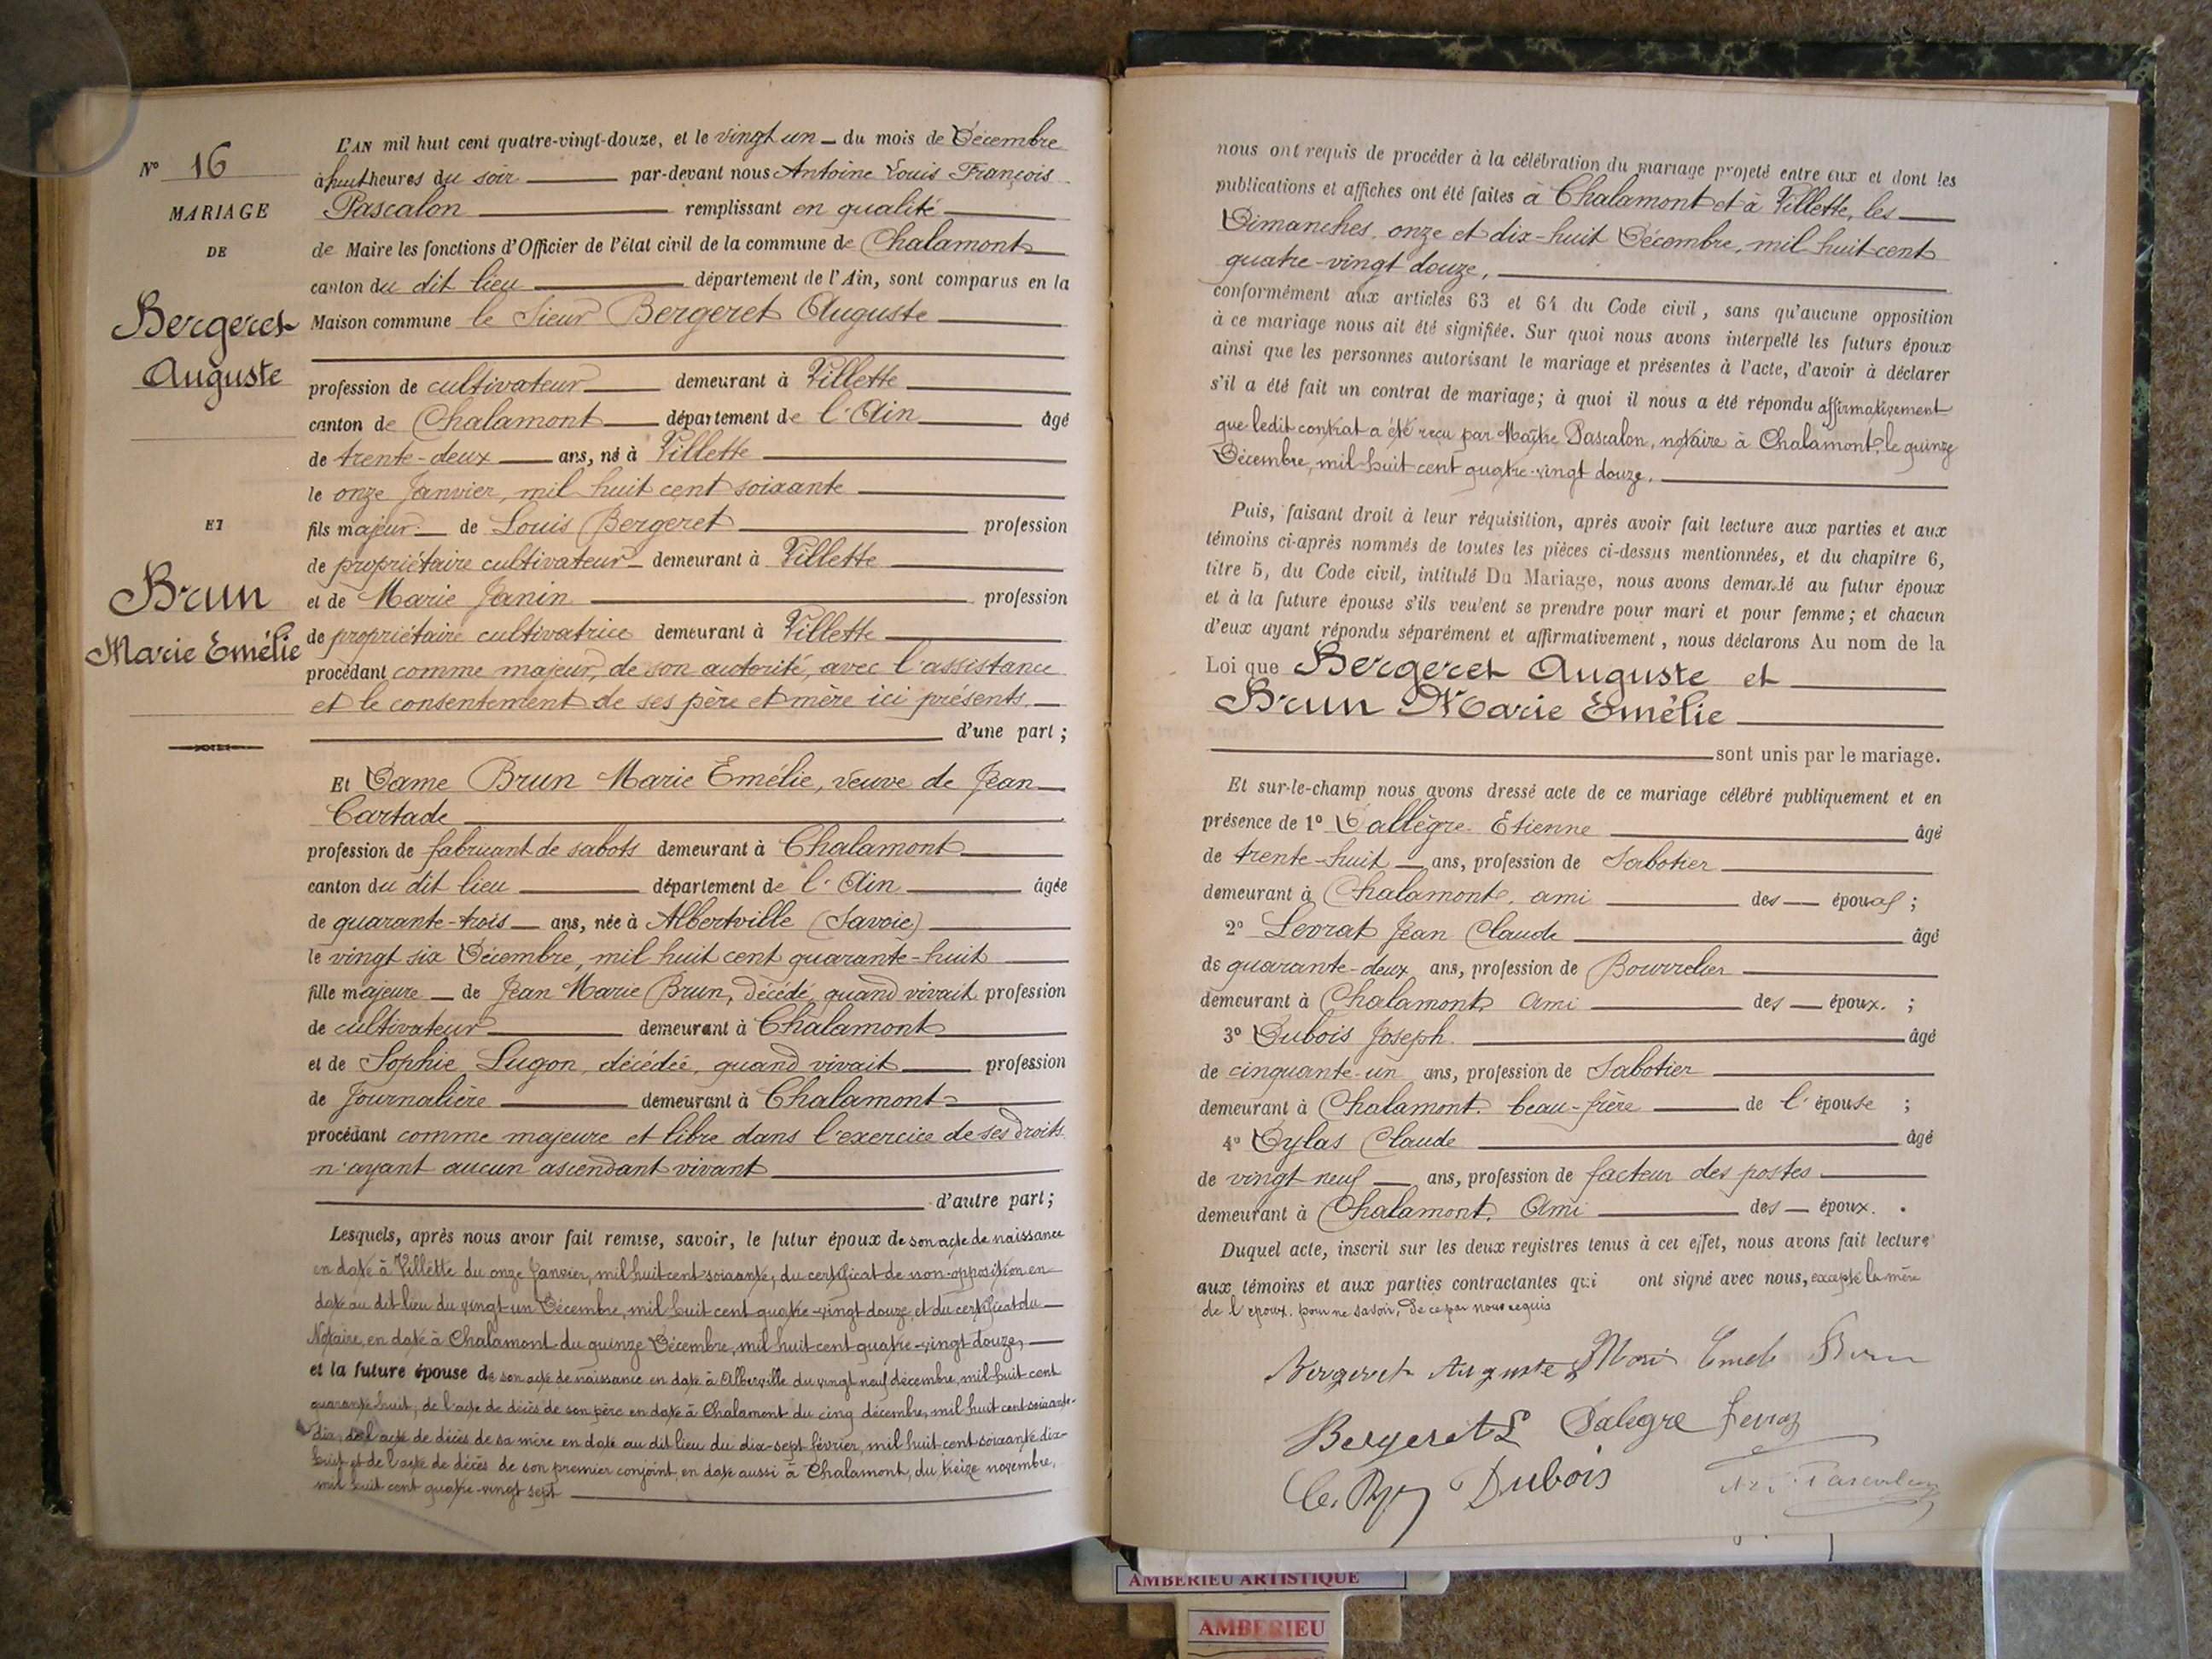 N° 16
MARIAGE
DE
Bergeret
Auguste
ET
Brun
Marie Emélie
L'AN mil huit cent quatre-vingt-douze, et le vingt un du mois de Décembre
à huit heures du soir par-devant nous Antoine Louis François
Pascalon remplissant en qualité
de Maire les fonctions d'Officier de l'état civil de la commune de Chalamont
canton du dit lieu département de l'Ain, sont comparus en la
Maison commune le Sieur Bergeret Auguste
profession de cultivateur demeurant à Villette
canton de Chalamont département de l'Ain âgé
de trente-deux ans, né à Villette
le onze Janvier, mil huit cent soixante
fils majeur de Louis Bergeret profession
de propriétaire cultivateur demeurant à Villette
et de Marie Janin profession
de propriétaire cultivatrice demeurant à Villette
procédant comme majeur, de son autorité, avec l'assistance
et le consentement de ses père et mère ici présents.
d'une part ;
Et Dame Brun Marie Emélie, veuve de Jean
Cartade
profession de fabricant de sabots demeurant à Chalamont
canton du dit lieu département de l'Ain âgée
de quarante-trois ans, née à Albertville (Savoie)
le vingt six Décembre, mil huit cent quarante-huit
fille majeure de Jean Marie Brun, décédé, quand vivait profession
de cultivateur demeurant à Chalamont
et de Sophie Lugon, décédée, quand vivait profession
de Journalière demeurant à Chalamont
procédant comme majeure et libre dans l'exercice de ses droits
n'ayant aucun ascendant vivant
d'autre part ;
Lesquels, après nous avoir fait remise, savoir, le futur époux de son acte de naissance
en date à Villette du onze Janvier, mil huit cent soixante, du certificat de non-opposition en
date au dit lieu du vingt-un Décembre, mil huit cent quatre-vingt douze, et du certificat du
Notaire, en date à Chalamont du quinze Décembre, mil huit cent quatre-vingt douze,
et la future épouse de son acte de naissance en date à Alberville du vingt neuf décembre, mil huit cent
quarante huit, de l'acte de décès de son père en date à Chalamont du cinq décembre, mil huit cent soixante-
dix, de l'acte de décès de sa mère en date au dit lieu du dix-sept février, mil huit cent soixante dix-
huit et de l'acte de décès de son premier conjoint, en date aussi à Chalamont, du treize novembre,
mil huit cent quatre-vingt sept
nous ont requis de procéder à la célébration du mariage projeté entre eux et dont les
publications et affiches ont été faites à Chalamont et à Villette, les
Dimanches, onze et dix-huit Décembre, mil huit cent
quatre-vingt douze,
conformément aux articles 63 et 64 du Code civil, sans qu'aucune opposition
à ce mariage nous ait été signifiée. Sur quoi nous avons interpellé les futurs époux
ainsi que les personnes autorisant le mariage et présentes à l'acte, d'avoir à déclarer
s'il a été fait un contrat de mariage ; à quoi il nous a été répondu affirmativement
que ledit contrat a été reçu par Maître Pascalon, notaire à Chalamont, le quinze
Décembre, mil huit cent quatre-vingt douze.
Puis, faisant droit à leur réquisition, après avoir fait lecture aux parties et aux
témoins ci-après nommés de toutes les pièces ci-dessus mentionnées, et du chapitre 6,
titre 5, du Code civil, intitulé Du Mariage, nous avons demandé au futur époux
et à la future épouse s'ils veulent se prendre pour mari et pour femme ; et chacun
d'eux ayant répondu séparément et affirmativement, nous déclarons Au nom de la
Loi que Bergeret Auguste et
Brun Marie Emélie
sont unis par le mariage.
Et sur-le-champ nous avons dressé acte de ce mariage célébré publiquement et en
présence de 1° Dallègre Etienne âgé
de trente-huit ans, profession de Sabotier
demeurant à Chalamont, ami des époux ;
2° Levrat Jean Claude âgé
de quarante-deux ans, profession de Bourrelier
demeurant à Chalamont, ami des époux. ;
3° Dubois Joseph âgé
de cinquante-un ans, profession de Sabotier
demeurant à Chalamont, beau-frère de l'épouse ;
4° Dylas Claude âgé
de vingt neuf ans, profession de facteur des postes
demeurant à Chalamont, Ami des époux.
Duquel acte, inscrit sur les deux registres tenus à cet effet, nous avons fait lecture
aux témoins et aux parties contractantes qui ont signé avec nous, excepté la mère
de l'époux, pour ne savoir, de ce par nous requis
Bergeret Auguste Brun
Bergeret L Dalegre
Dubois Pascalon
AMBERIEU ARTISTIQUE
AMBERIEU